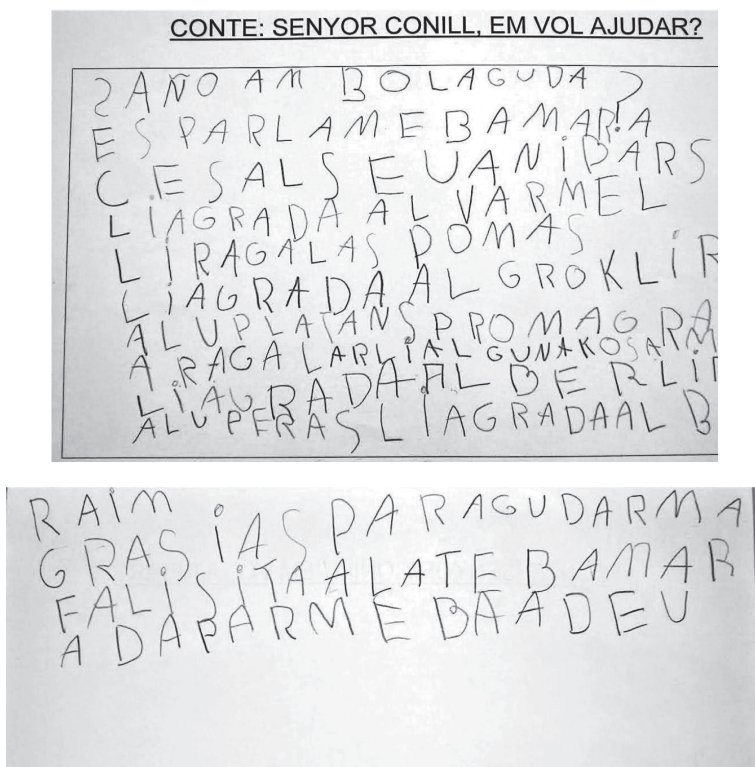 CONTE: SENYOR CONILL, EM VOL AJUDAR?
?AÑO AM BOLAGUDA?
ES PARLAMEBAMARA
C.ESALSEUANIBARS
LIAGRADA AL VARMEL
LIRAGALAS POMAS
LIAGRADAAL GROKLIR
ALUPLATANSPROMAGRA
ARAGALARLIALGUNAKOSAM
LIAGRADAAL BERLIR
ALUPERASLIAGRADAALB
RAIM
iASPARAGUDARMA
GRASiTAALATEBAMAR
FALISiTAALATEBAMAR
ADAPARMEBAADEU